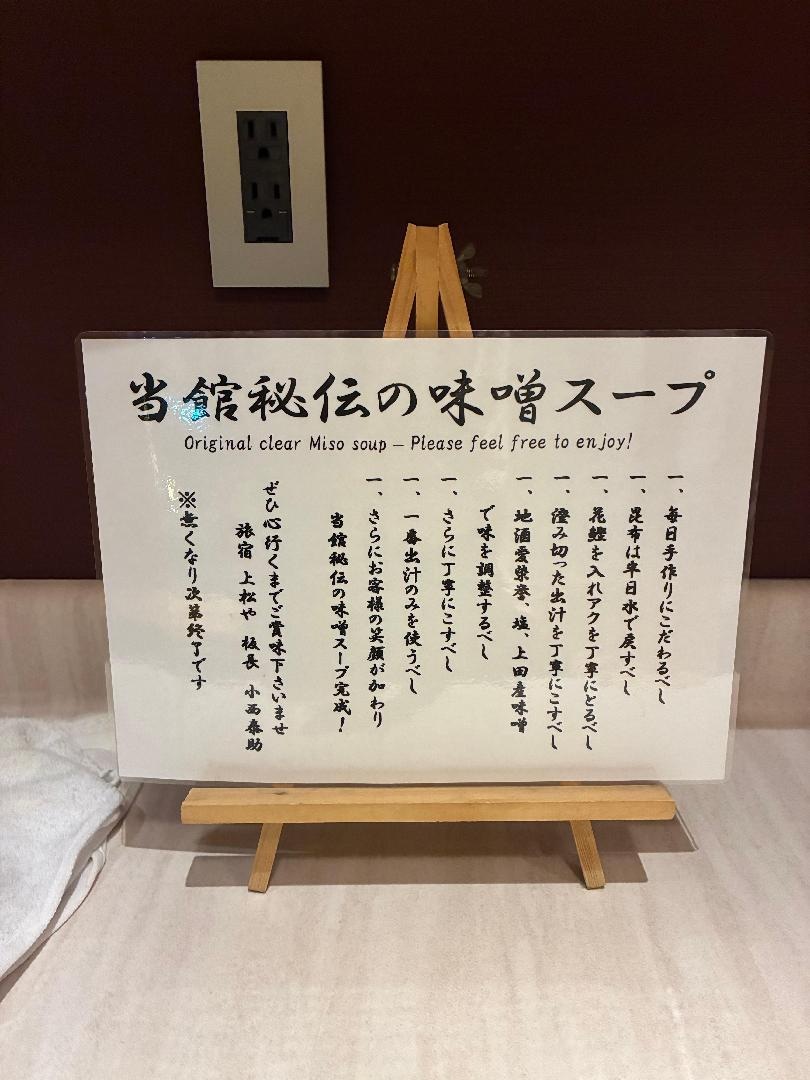 当館秘伝の味噌スープ
Original clear Miso soup – Please feel free to enjoy!
一、毎日手作りにこだわるべし
一、昆布は半日水で戻すべし
一、花鰹を入れアクを丁寧にとるべし
一、澄み切った出汁を丁寧にこすべし
一、地酒愛染誉、塩、上田産味噌
で味を調整するべし
一、さらに丁寧にこすべし
一、一番出汁のみを使うべし
一、さらにお客様の笑顔が加わり
当館秘伝の味噌スープ完成！
ぜひ心行くまでご賞味下さいませ
旅宿 上松や 板長 小西泰助
※無くなり次第終了です